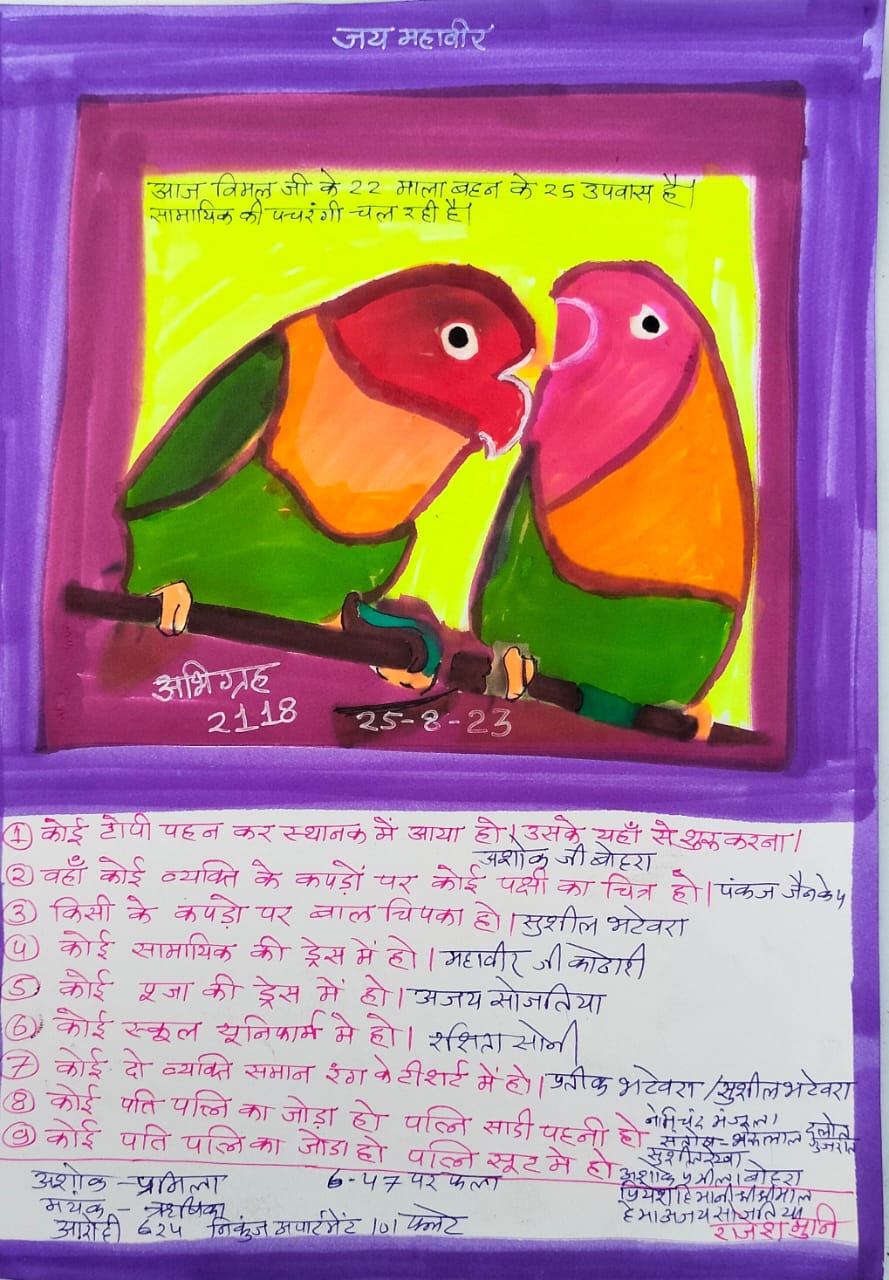 जय महावीर
आज विमल जी के 22 माला बहन के 25 उपवास है।
सामायिक की पचरंगी चल रही है।
अभिग्रह
2118
25-8-23
① कोई टोपी पहन कर स्थानक में आया हो। उसके यहाँ से शुरू करना।
अशोक जी बोहरा
② वहाँ कोई व्यक्ति के कपड़ों पर कोई पक्षी का चित्र हो। पंकज जैन
③ किसी के कंपड़ो पर बाल चिपका हो। सुशील भटेवरा
④ कोई सामायिक की ड्रेस में हो। महावीर जी कोठारी
⑤ कोई पूजा की ड्रेस में हो। अजय सोजतिया
⑥ कोई स्कूल यूनिफार्म मे हो। रक्षिता सोनी
⑦ कोई दो व्यक्ति समान रंग के टीशर्ट में हो। प्रतीक भटेवरा / सुशील भटेवरा
⑧ कोई पति पत्नि का जोड़ा हो पत्नि साडी पहनी हो
नेमिचंद मंजुला
⑨ कोई पति पत्नि का जोडा हो पत्नि सूट मे हो
सुशील रेखा
अशोक प्रमीला बोहरा
अशोक - प्रमिला 6-47 पर फला
प्रियेश हिमानी श्रीश्रीमाल
मयंक -
हेमा अजय सोजतिया
आरोही 624 निकुंज अपार्टमेंट 101 फ्लेट
राजेश मुनि